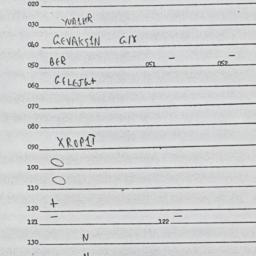 020
030
040 GEVAKSIN GIX
050 BER 051 - 052 -
060
070
080
090 XROPIT
100 O
110 O
120 +
121 - 122 -
130 N